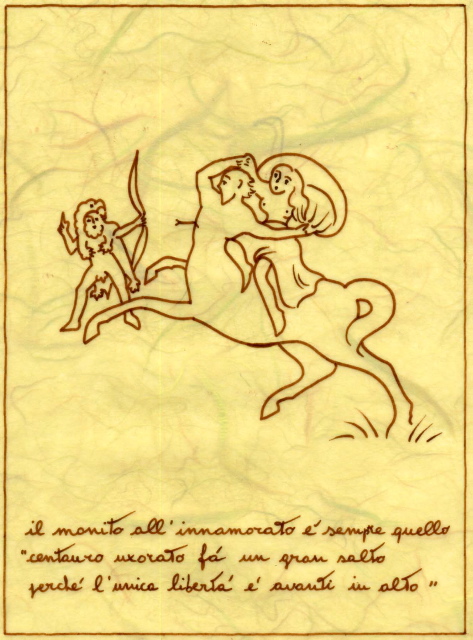 il monito all'innamorato é sempre quello
"centauro uxorato fá un gran salto
perché l'unica libertá é avanti in alto"